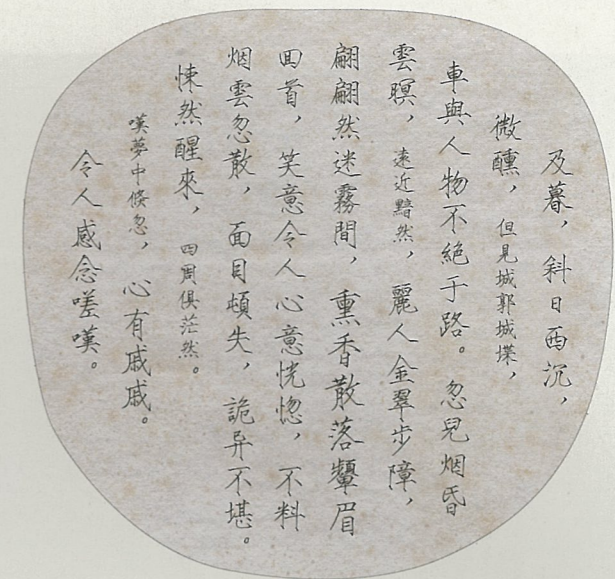 及暮，斜日西沉，
微醺，但見城郭城堞，
車與人物不絕于路。忽見烟昏
雲暝，遠近黯然，麗人金翠步障，
翩翩然迷霧間，熏香散落顰眉
回首，笑意令人心意恍惚，不料
烟雲忽散，面目頓失，詭异不堪。
悚然醒來，四周俱茫然。
嘆夢中倏忽，心有戚戚。
令人感念嗟嘆。